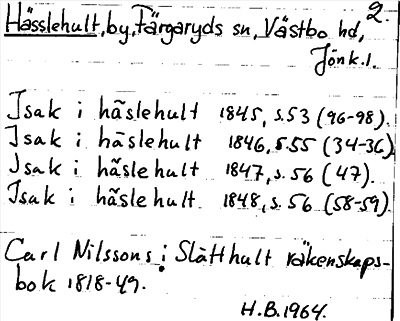 2.
Hässlehult, by, Färgaryds sn, Västbo hd,
Jönk.l.
Isak i häslehult 1845, s.53 (96-98).
Isak i häslehult 1846, s.55 (34-36)
Isak i häslehult 1847, s.56 (47).
Isak i häslehult 1848, s.56 (58-59)
Carl Nilssons i Slätthult räkenskaps-
bok 1818-49.
H.B.1964.